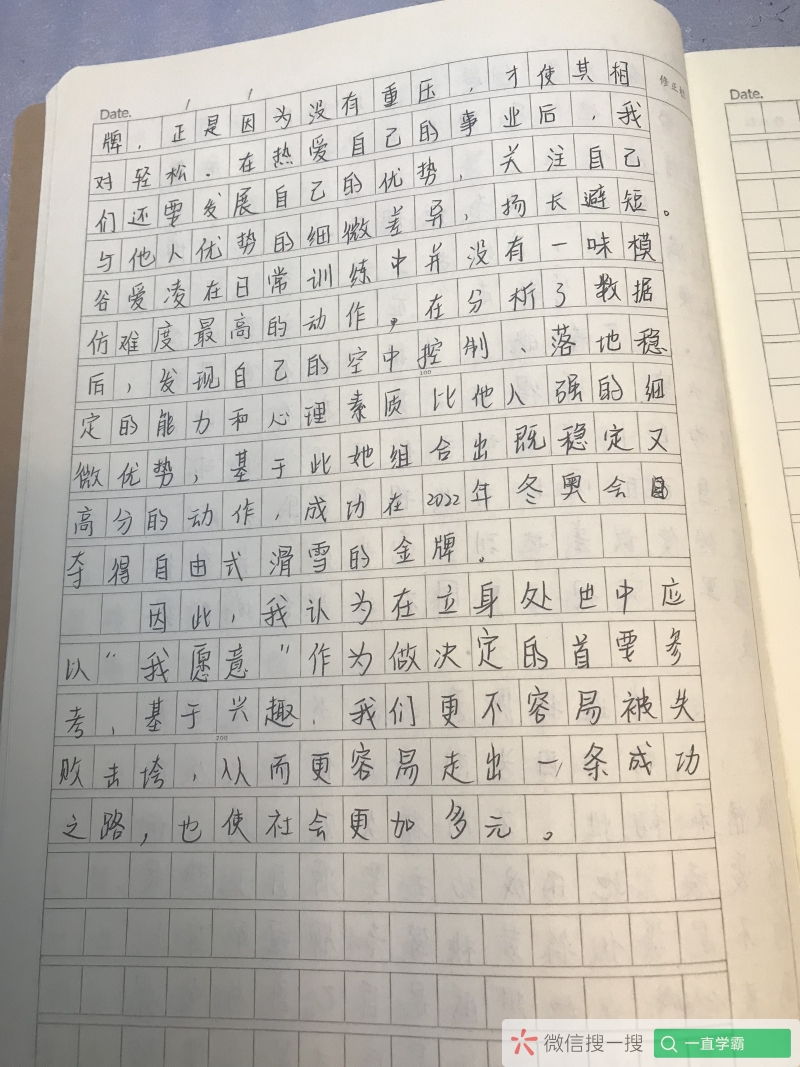 Date.
修正栏
Date.
牌，正是因为没有重压，才使其相
对轻松．在热爱自己的事业后，我
们还要发展自己的优势，关注自己
与他人优势的细微差异，扬长避短。
谷爱凌在日常训练中并没有一味模
仿难度最高的动作，在分析了数据
后，发现自己的空中控制、落地稳
100
定的能力和心理素质比他人强的细
微优势，基于此她组合出既稳定又
高分的动作，成功在2022年冬奥会
夺得自由式滑雪的金牌。
因此，我认为在立身处世中应
以“我愿意”作为做决定的首要参
考，基于兴趣，我们更不容易被失
200
败击垮，从而更容易走出一条成功
之路，也使社会更加多元。
微信搜一搜
一直学霸